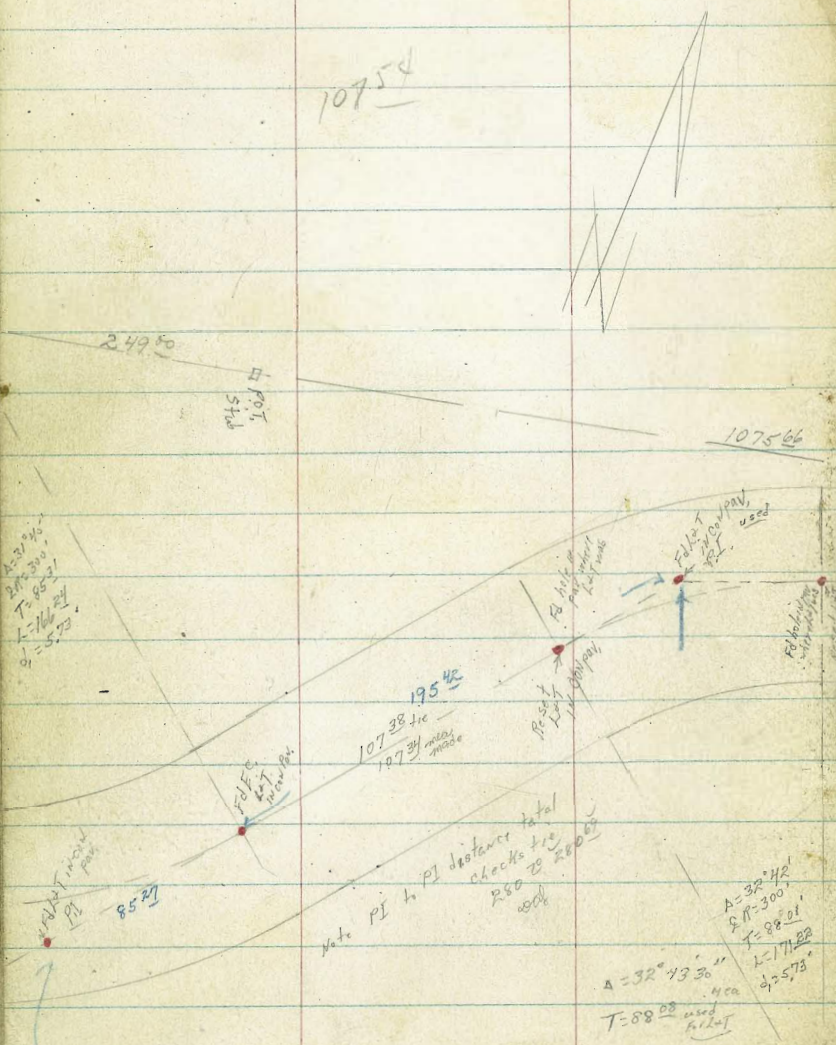 107 54
249 50
P.O.T.
Stub
1075 66
Δ=31°40'
R=300'
T=85 21
L=166 24
d,=5.73'
Fd hole in
pav. where
L&T was
Fd L&T
in con pav.
P.I. used
Reset
L&T
in con pav.
195 42
107 38 tie
107 34 meas
made
Fd EC
L&T
in con pav.
Fd L&T in con
pav.
PI
85 27
Note PI to PI distance total
checks tie
280 70 280 69
good
Δ=32°42'
R=300'
T=88 01
L=171 22
d,=5.73'
Δ=32° 43' 30"
mea
T=88 08 used
for L&T